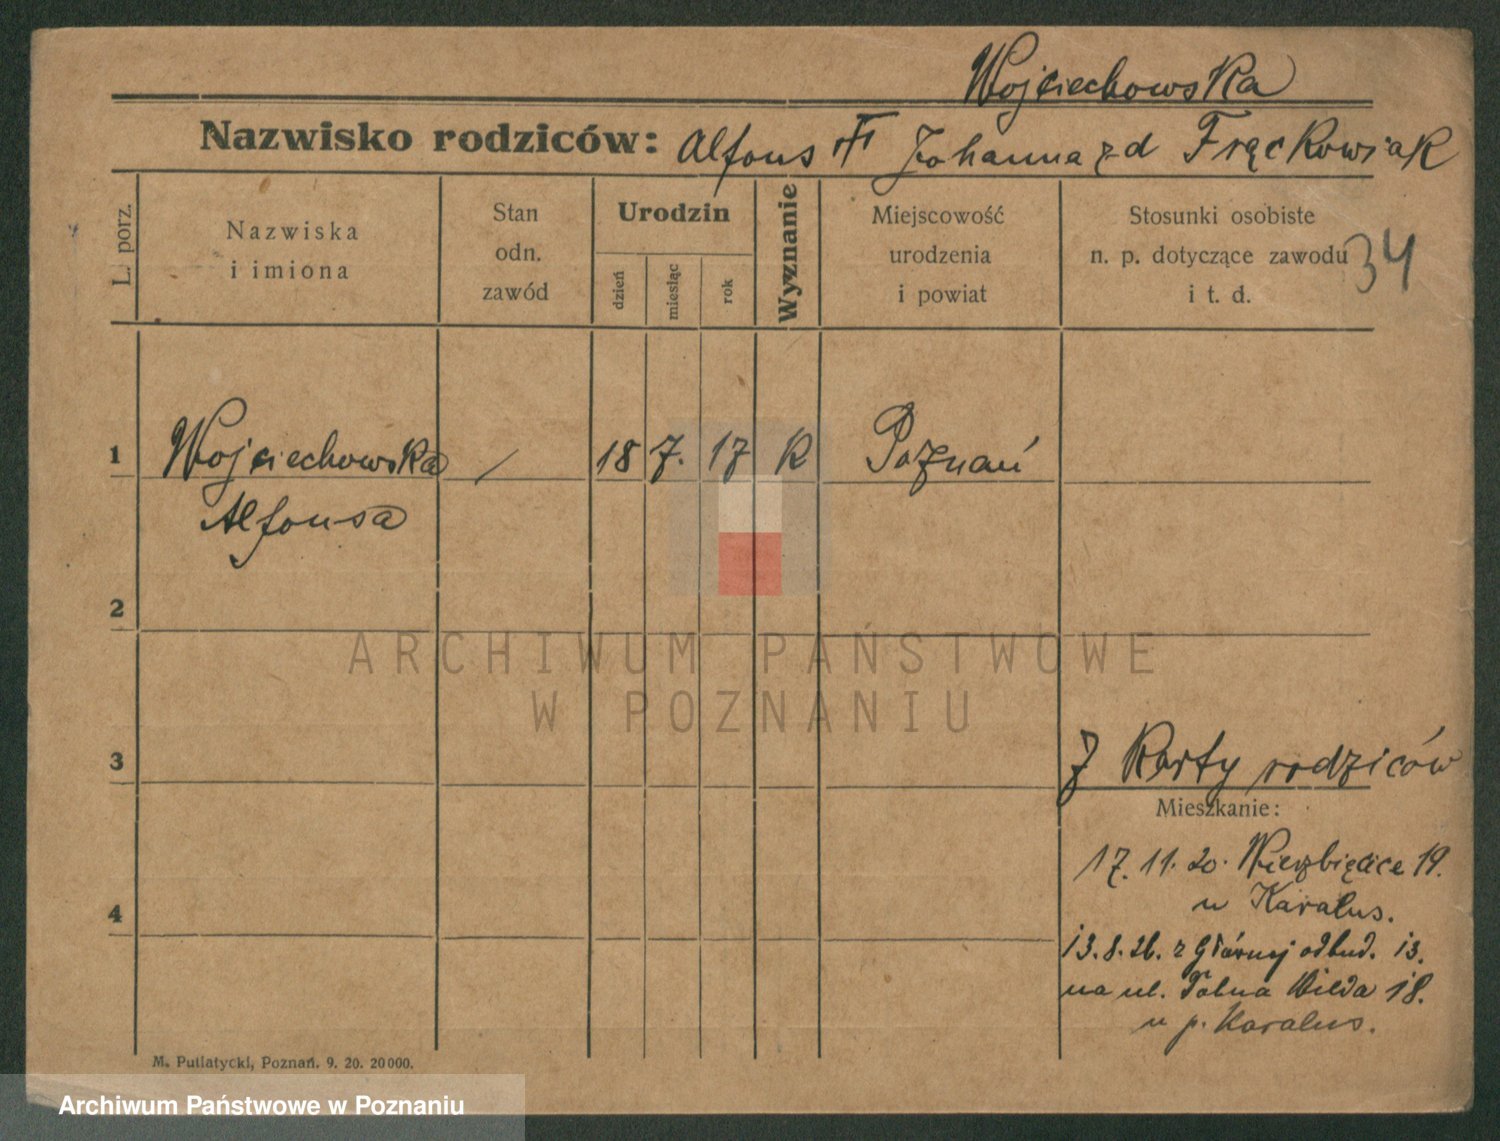 Wojciechowska
Nazwisko rodziców: Alfons Johanna zd Frąckowiak
L. porz.
Nazwiska
i imiona
Stan
odn.
zawód
Urodzin
dzień
miesiąc
rok
Wyznanie
Miejscowość
urodzenia
i powiat
Stosunki osobiste
n. p. dotyczące zawodu
i t. d.
34
1 Wojciechowska / 18 7. 17 K Poznań
Alfonsa
2
ARCHIWUM PAŃSTWOWE
W POZNANIU
3
Z Karty rodziców
Mieszkanie:
17. 11. 20. Wierzbięcice 19.
u Karalus.
4
13. 8. 26. z Głównej odbud. 13.
na ul. Dolna Wilda 18.
u p. Karalus.
M. Putiatycki, Poznań. 9. 20. 20000.
Archiwum Państwowe w Poznaniu